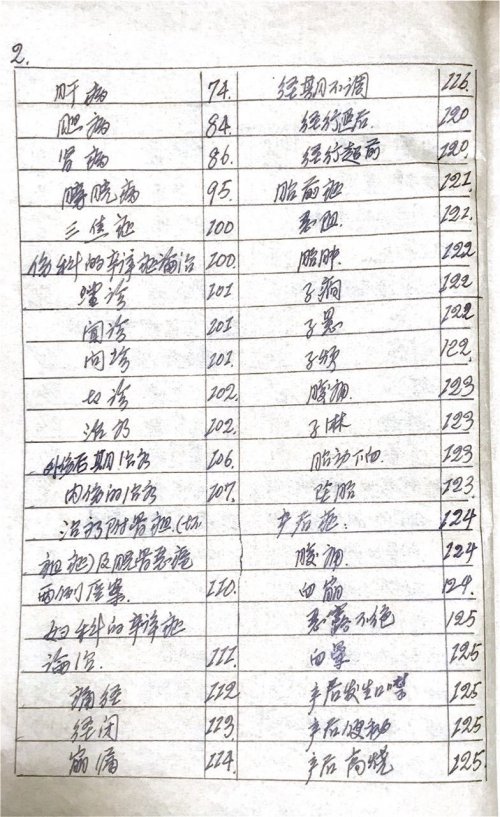 2.
肝病 74.
胆病 84.
肾病 86.
膀胱病 95.
三焦证 100
伤科的辛证论治 100.
诊 101
闻诊 101
问诊 101.
切诊 102.
治疗 102.
外伤后期治疗 106.
内伤的治疗 107.
治疗附骨疽(
疽证)及脱骨恶疮
两例医案. 110.
妇科的辛证
论治. 111.
痛经 112
经闭 113
崩漏 114
经期不调 116.
经行迟后. 120
经行超前 120.
胎前证 121
恶阻 121.
胎肿 122
子痫 122
子悬 122
子烦 122.
腹痛. 123
子淋 123
胎动下血. 123
坠胎 123.
产后证: 124
腹痛. 124
血崩 124.
恶露不绝 125
血晕 125
产后发生口噤 125
产后便秘 125
产后高烧 125.